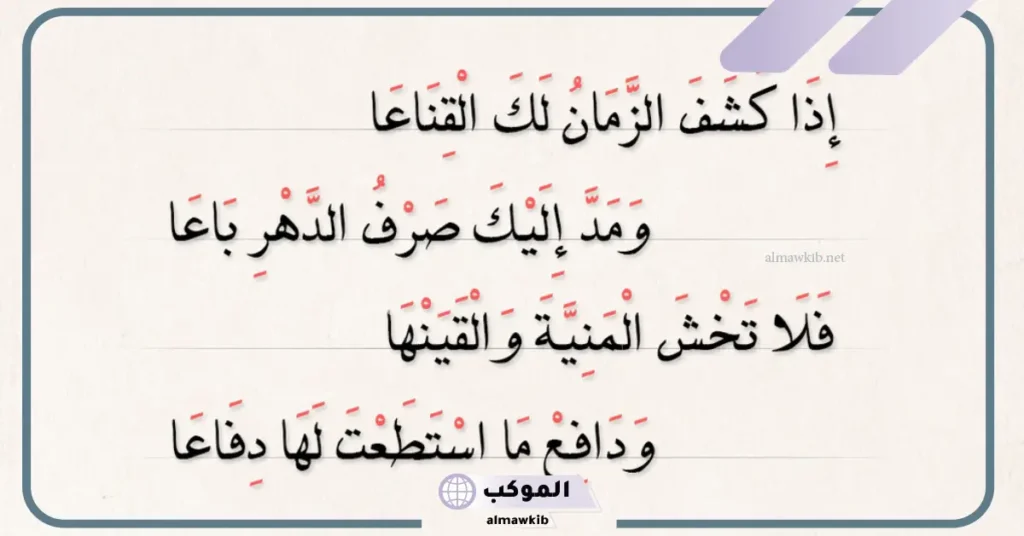 إِذَا كَشَفَ الزَّمَانُ لَكَ الْقِنَاعَا
وَمَدَّ إِلَيْكَ صَرْفُ الدَّهْرِ بَاعَا
almawkib.net
فَلَا تَخْشَ الْمَنِيَّةَ وَالْقَيَنْهَا
وَدَافِعْ مَا اسْتَطَعْتَ لَهَا دِفَاعَا
الموكب
almawkib